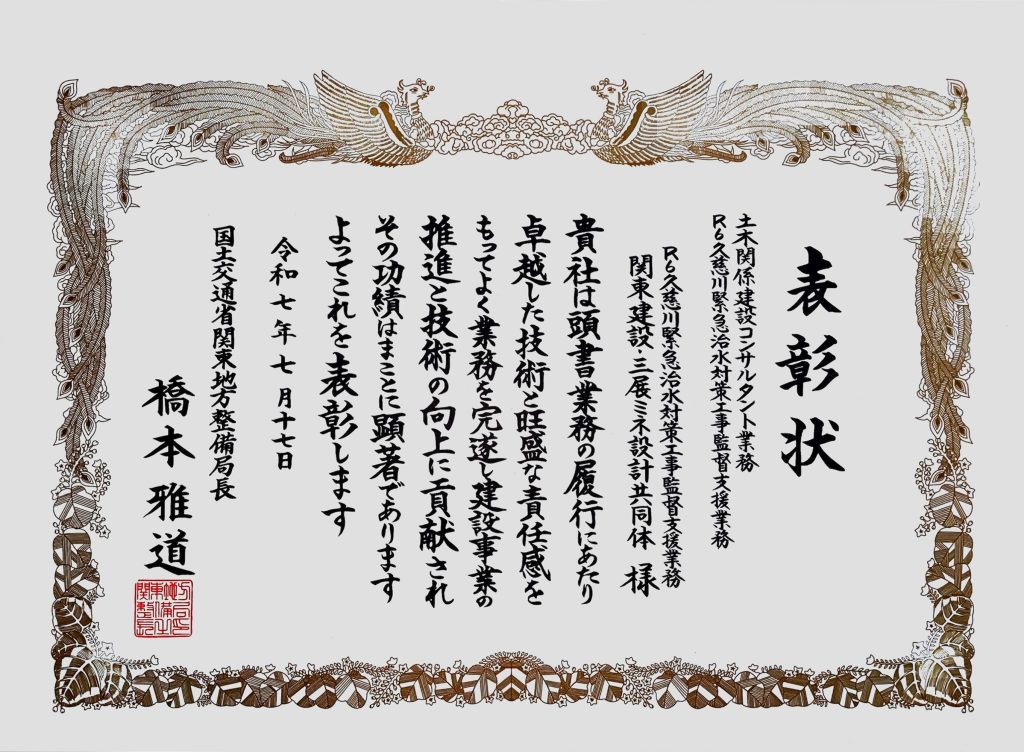 表彰状
土木関係建設コンサルタント業務
R6久慈川緊急治水対策工事監督支援業務
R6久慈川緊急治水対策工事監督支援業務
関東建設・三展ミネ設計共同体 様
貴社は頭書業務の履行にあたり
卓越した技術と旺盛な責任感を
もってよく業務を完遂し建設事業の
推進と技術の向上に貢献され
その功績はまことに顕著であります
よってこれを表彰します
令和七年七月十七日
国土交通省関東地方整備局長
橋本雅道